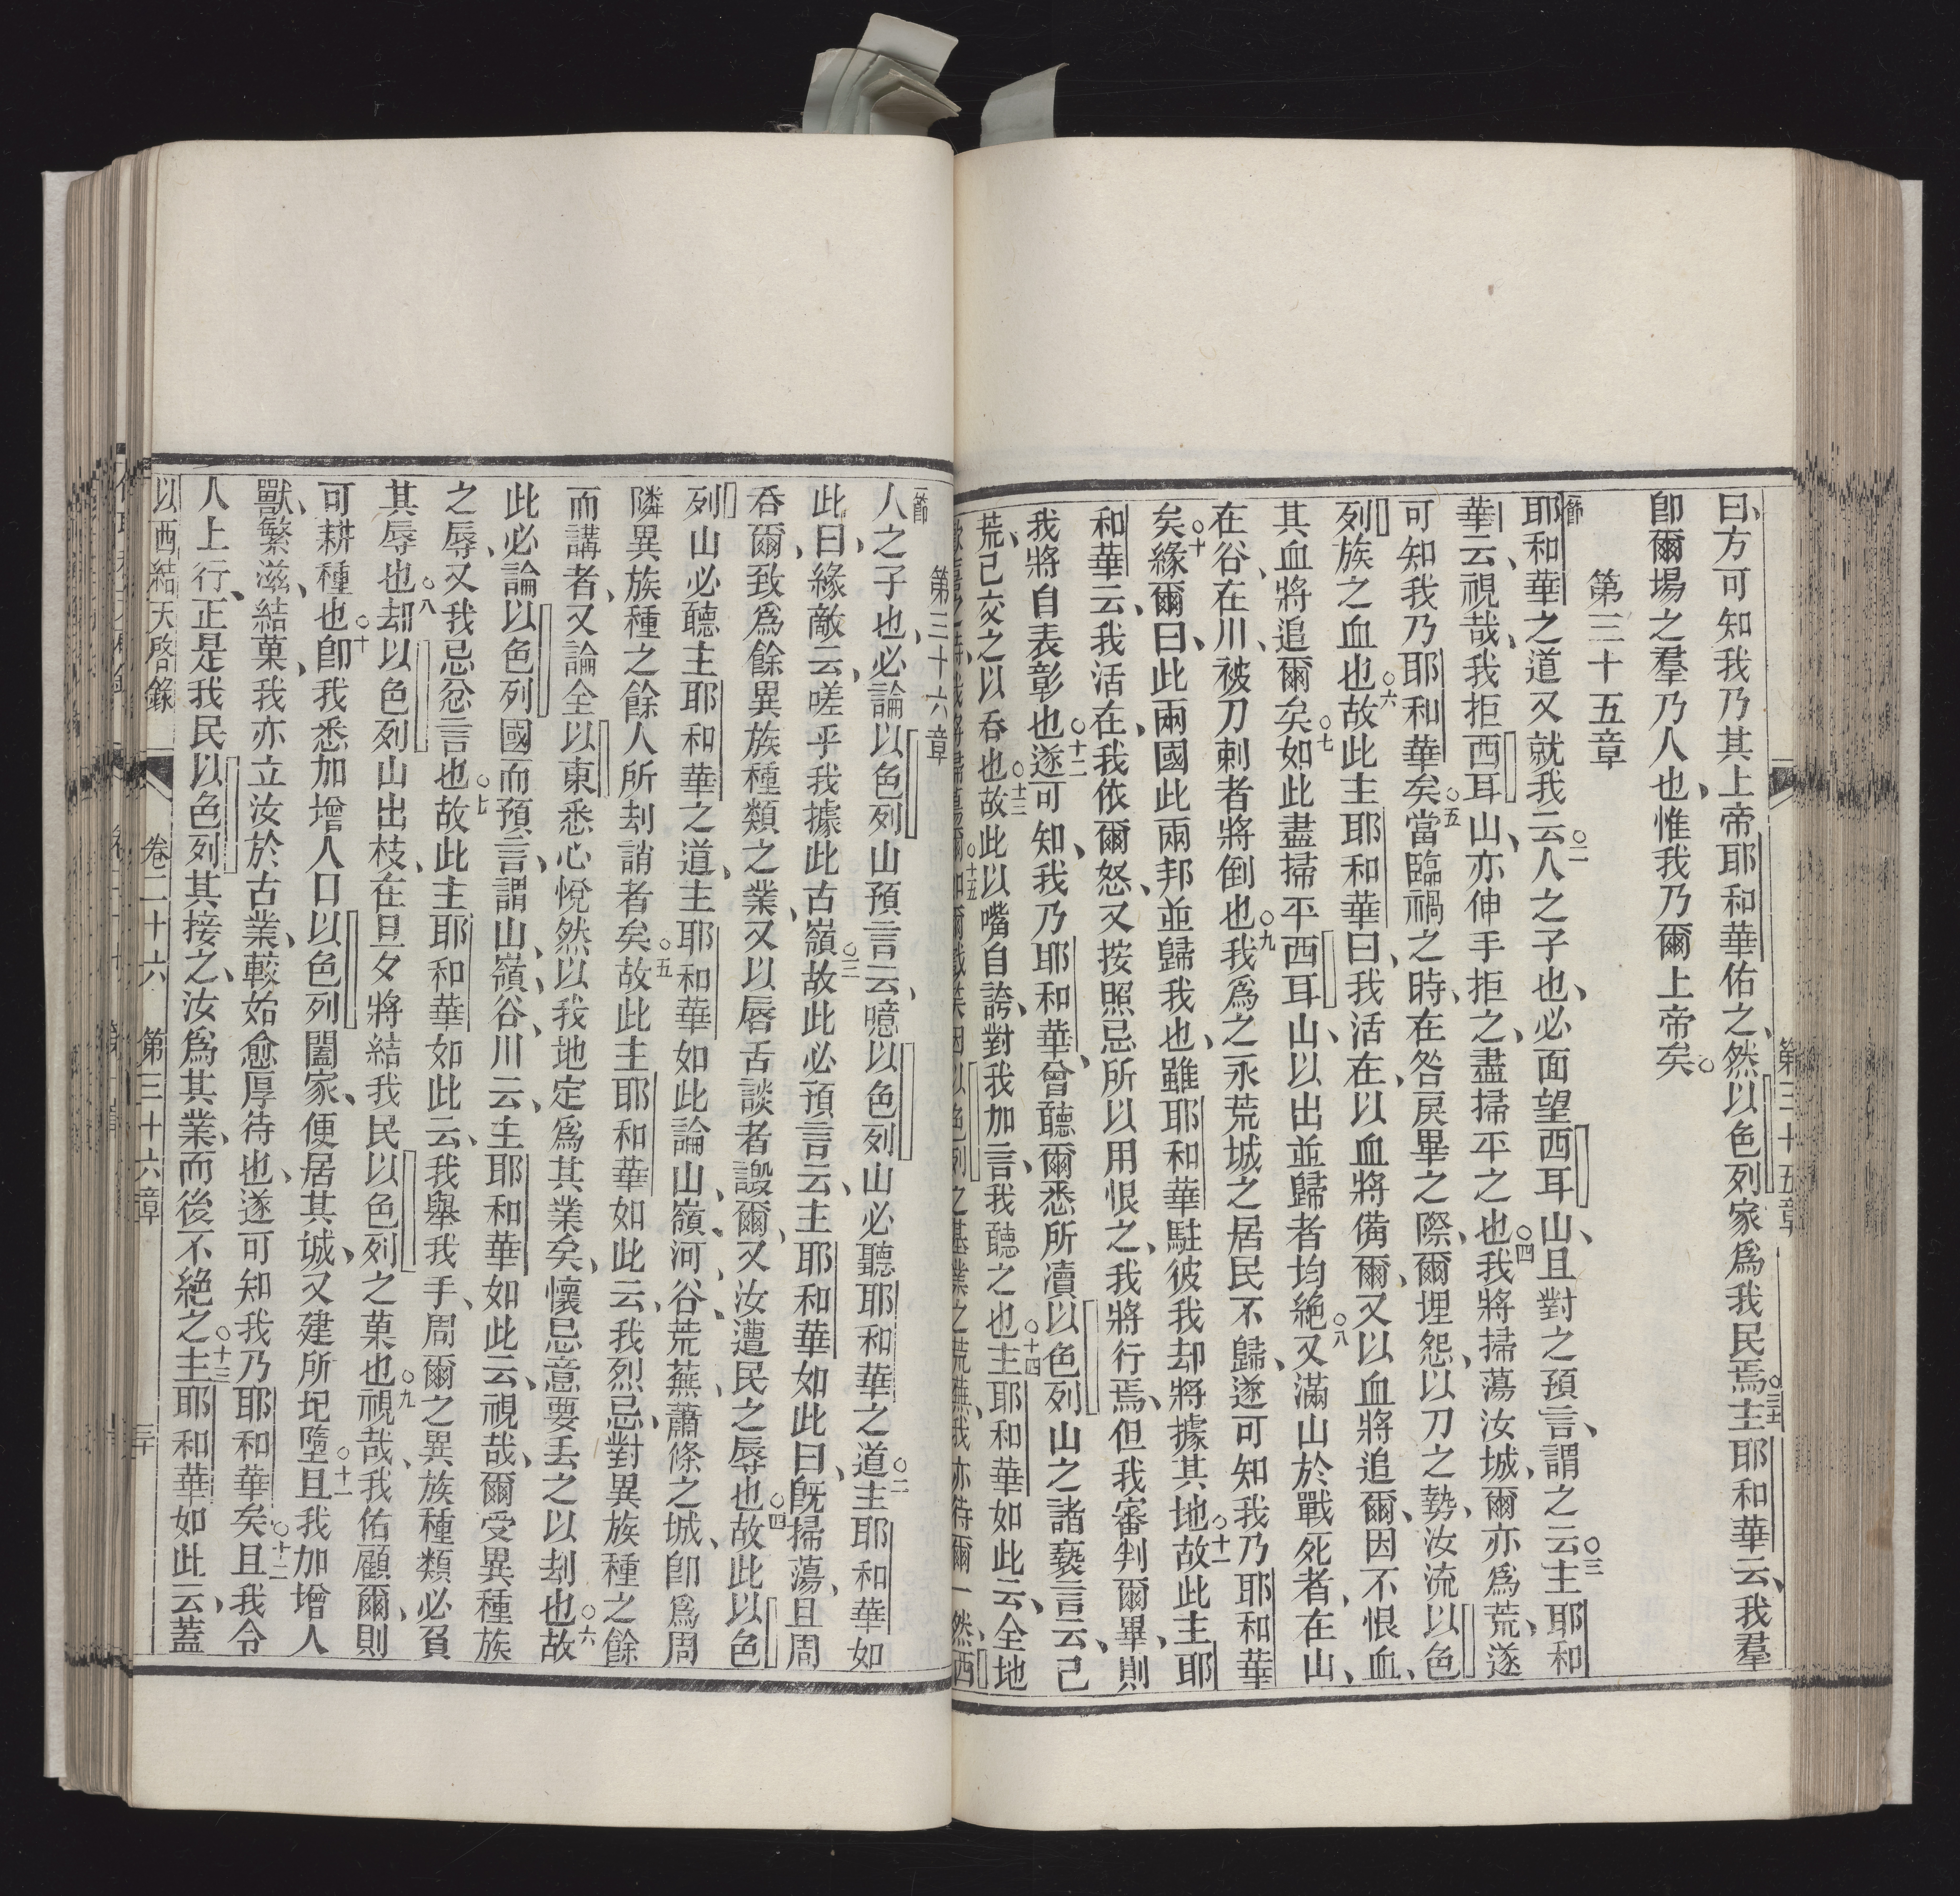 第三十五章
曰、方可知我乃其上帝耶和華佑之、然以色列家爲我民焉。○三十一主耶和華云、我羣
卽爾場之羣乃人也、惟我乃爾上帝矣。
第三十五章
一節耶和華之道又就我云○二人之子也、必面望西耳山、且對之預言、謂之云○三主耶和
華云、視哉、我拒西耳山、亦伸手拒之、盡掃平之也○四我將掃蕩汝城、爾亦爲荒、遂
可知我乃耶和華矣○五當臨禍之時、在咎戾畢之際、爾埋怨、以刀之勢、汝流以色
列族之血也○六故此主耶和華曰、我活在、以血將備爾、又以血將追爾、因不恨血、
其血將追爾矣○七如此盡掃平西耳山、以出並歸者均絕○八又滿山於戰死者、在山、
在谷、在川、被刀刺者將倒也○九我爲之永荒城之居民不歸、遂可知我乃耶和華
矣○十緣爾曰、此兩國此兩邦並歸我也、雖耶和華駐彼我却將據其地○十一故此主耶
和華云、我活在、我依爾怒、又按照忌所以用恨之、我將行焉、但我審判爾畢、則
我將自表彰也○十二遂可知、我乃耶和華、曾聽爾悉所凟以色列山之諸褻言云、已
荒、已交之以吞也○十三故此以嘴自誇、對我加言、我聽之也○十四主耶和華如此云、全地
歡喜之時、我將掃蕩爾○十五如爾戲笑因以色列之基業之荒蕪、我亦待爾一然、西
第三十六章
一節人之子也、必論以色列山預言云、噫以色列山必聽耶和華之道○二主耶和華如
此曰、緣敵云、嗟乎我據此古嶺○三故此必預言云、主耶和華如此曰、旣掃蕩、且周
吞爾、致爲餘異族種類之業、又以唇舌談者譭爾、又汝遭民之辱也○四故此以色
列山必聽主耶和華之道、主耶和華如此論山、嶺、河、谷、荒蕪、蕭條之城、卽爲周
隣異族種之餘人所刦誚者矣○五故此主耶和華如此云、我烈忌、對異族種之餘
而講者、又論全以東悉心悅然以我地定爲其業矣、懷忌意要丟之以刦也○六故
此必論以色列國而預言、謂山、嶺、谷、川云、主耶和華如此云、視哉、爾受異種族
之辱、又我忌忿言也○七故此主耶和華如此云、我舉我手、周爾之異族種類必負
其辱也○八却以色列山出枝、在旦夕將結我民以色列之菓也○九視哉、我佑顧爾、則
可耕種也○十卽我悉加增人口以色列闔家、便居其城、又建所圮墮○十一且我加增人
獸、繁滋、結菓、我亦立汝於古業、較始愈厚待也、遂可知我乃耶和華矣○十二且我令
人上行、正是我民以色列其接之、汝爲其業、而後不絕之○十三主耶和華如此云、蓋
以西結天啓錄 卷二十六 第三十六章 三十